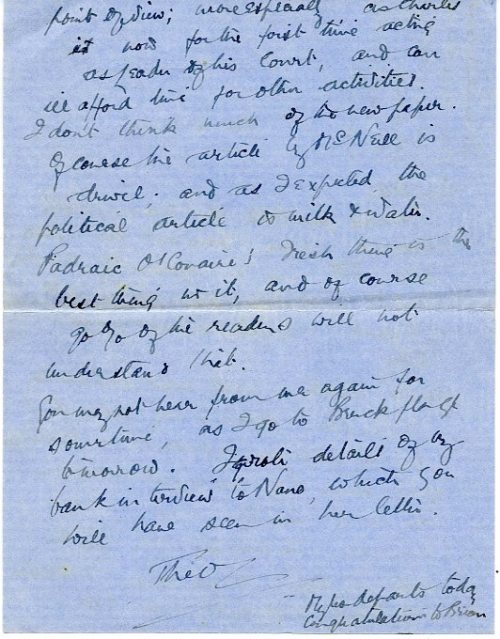 point of view; more especially as Charles
is now for the first time acting
as leader of his Court, and can
ill afford time for other activities.
I don't think much of the new paper.
Of course the article by McNeill is
drivel; and as I expected the
political article is milk & water.
Padraic O'Conaire's Irish thing is the
best thing in it, and of course
90% of the readers will not
understand that.
You may not hear from me again for
sometime, as I go to
tomorrow. I wrote details of my
bank interview to Nano, which you
will have seen in her letter.
Theo
departs today
Congratulations to